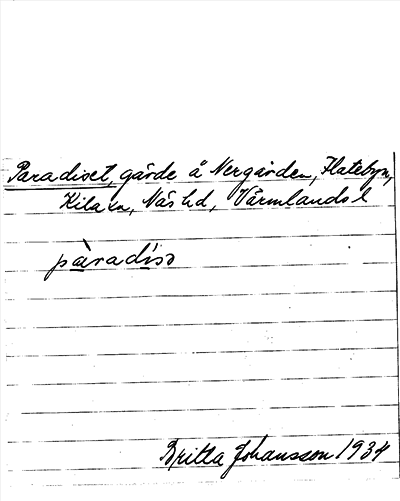 Paradiset, gärde å Nergården, Flatebyn,
Kila sn, Näs hd, Värmlands l
pàradisɔ
Britta Johansson 1934